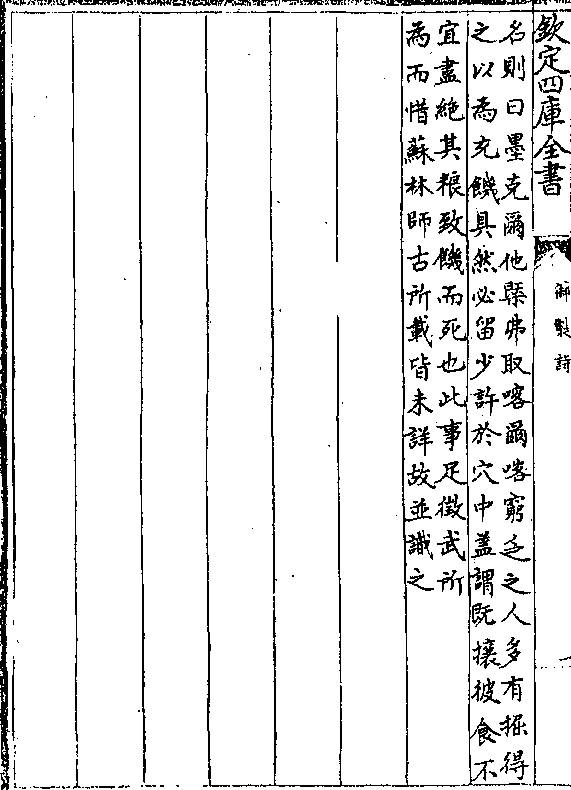 欽定四庫全書
御製詩
名則曰墨克爾他槩弗取喀爾喀窮乏之人多有掘得
之以為充饑具然必留少許於穴中蓋謂既攘彼食不
宜盡絕其粮致饑而死也此事足徵武所
為而惜蘇林師古所載皆未詳故並識之